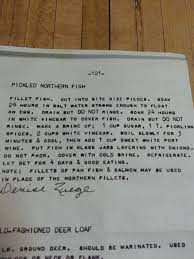 -131-
PICKLED NORTHERN FISH
FILLET FISH. CUT INTO BITE SIZE PIECES. SOAK
24 HOURS IN SALT WATER STRONG ENOUGH TO FLOAT
AN EGG. DRAIN BUT DO NOT RINSE. SOAK 24 HOURS
IN WHITE VINEGAR TO COVER FISH. DRAIN BUT DO NOT
RINSE. MAKE A BRINE OF: 1 CUP SUGAR, 1 T. PICKLING
SPICES, 2 CUPS WHITE VINEGAR. BOIL SLOWLY FOR 5
MINUTES & COOL, THEN ADD 1 CUP SWEET WHITE PORT
WINE. PUT FISH IN GLASS JARS LAYERING WITH ONIONS.
DO NOT PACK. COVER WITH COLD BRINE. REFRIGERATE.
LET SET FOR 4 DAYS & GOOD EATING.
NOTE: FILLETS OF PAN FISH & SALMON MAY BE USED
IN PLACE OF THE NORTHERN FILLETS.
Denise
LD-FASHIONED DEER LOAF
LB. GROUND DEER. SHOULD BE MARINATED. USED
OR NECK OR FLANK